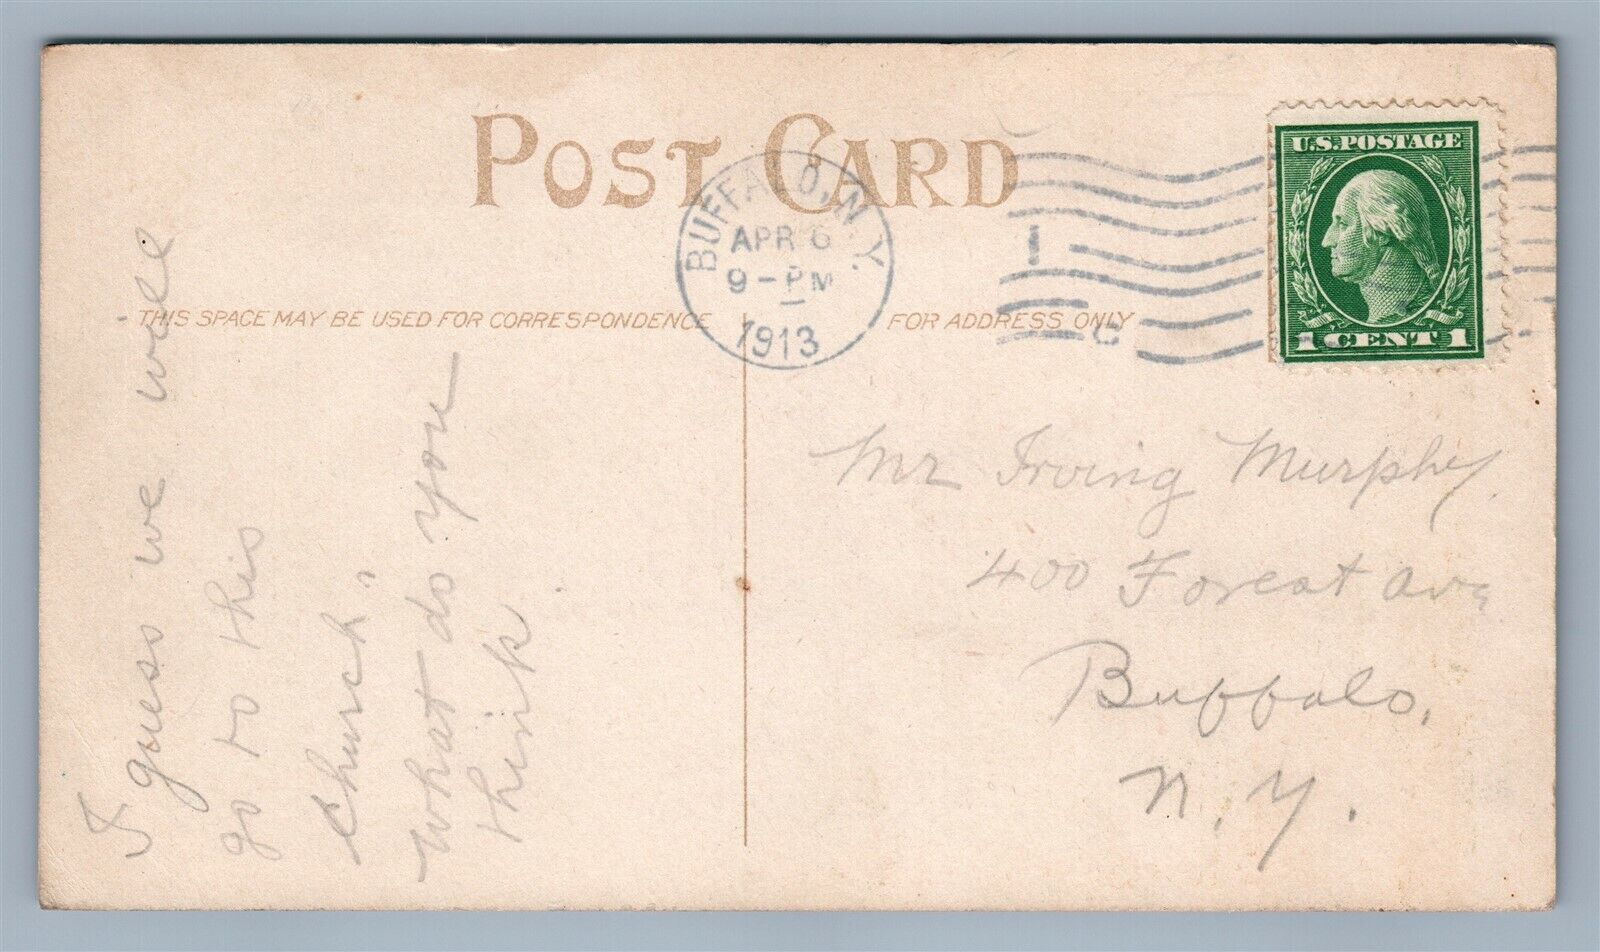 POST CARD
BUFFALO, N.Y.
APR 6
9-PM
1913
U.S. POSTAGE
1 CENT 1
THIS SPACE MAY BE USED FOR CORRESPONDENCE
FOR ADDRESS ONLY
I guess we will
go to this
church,
what do you
think.
Mr Irving Murphy.
400 Forest Ave
Buffalo,
N. Y.